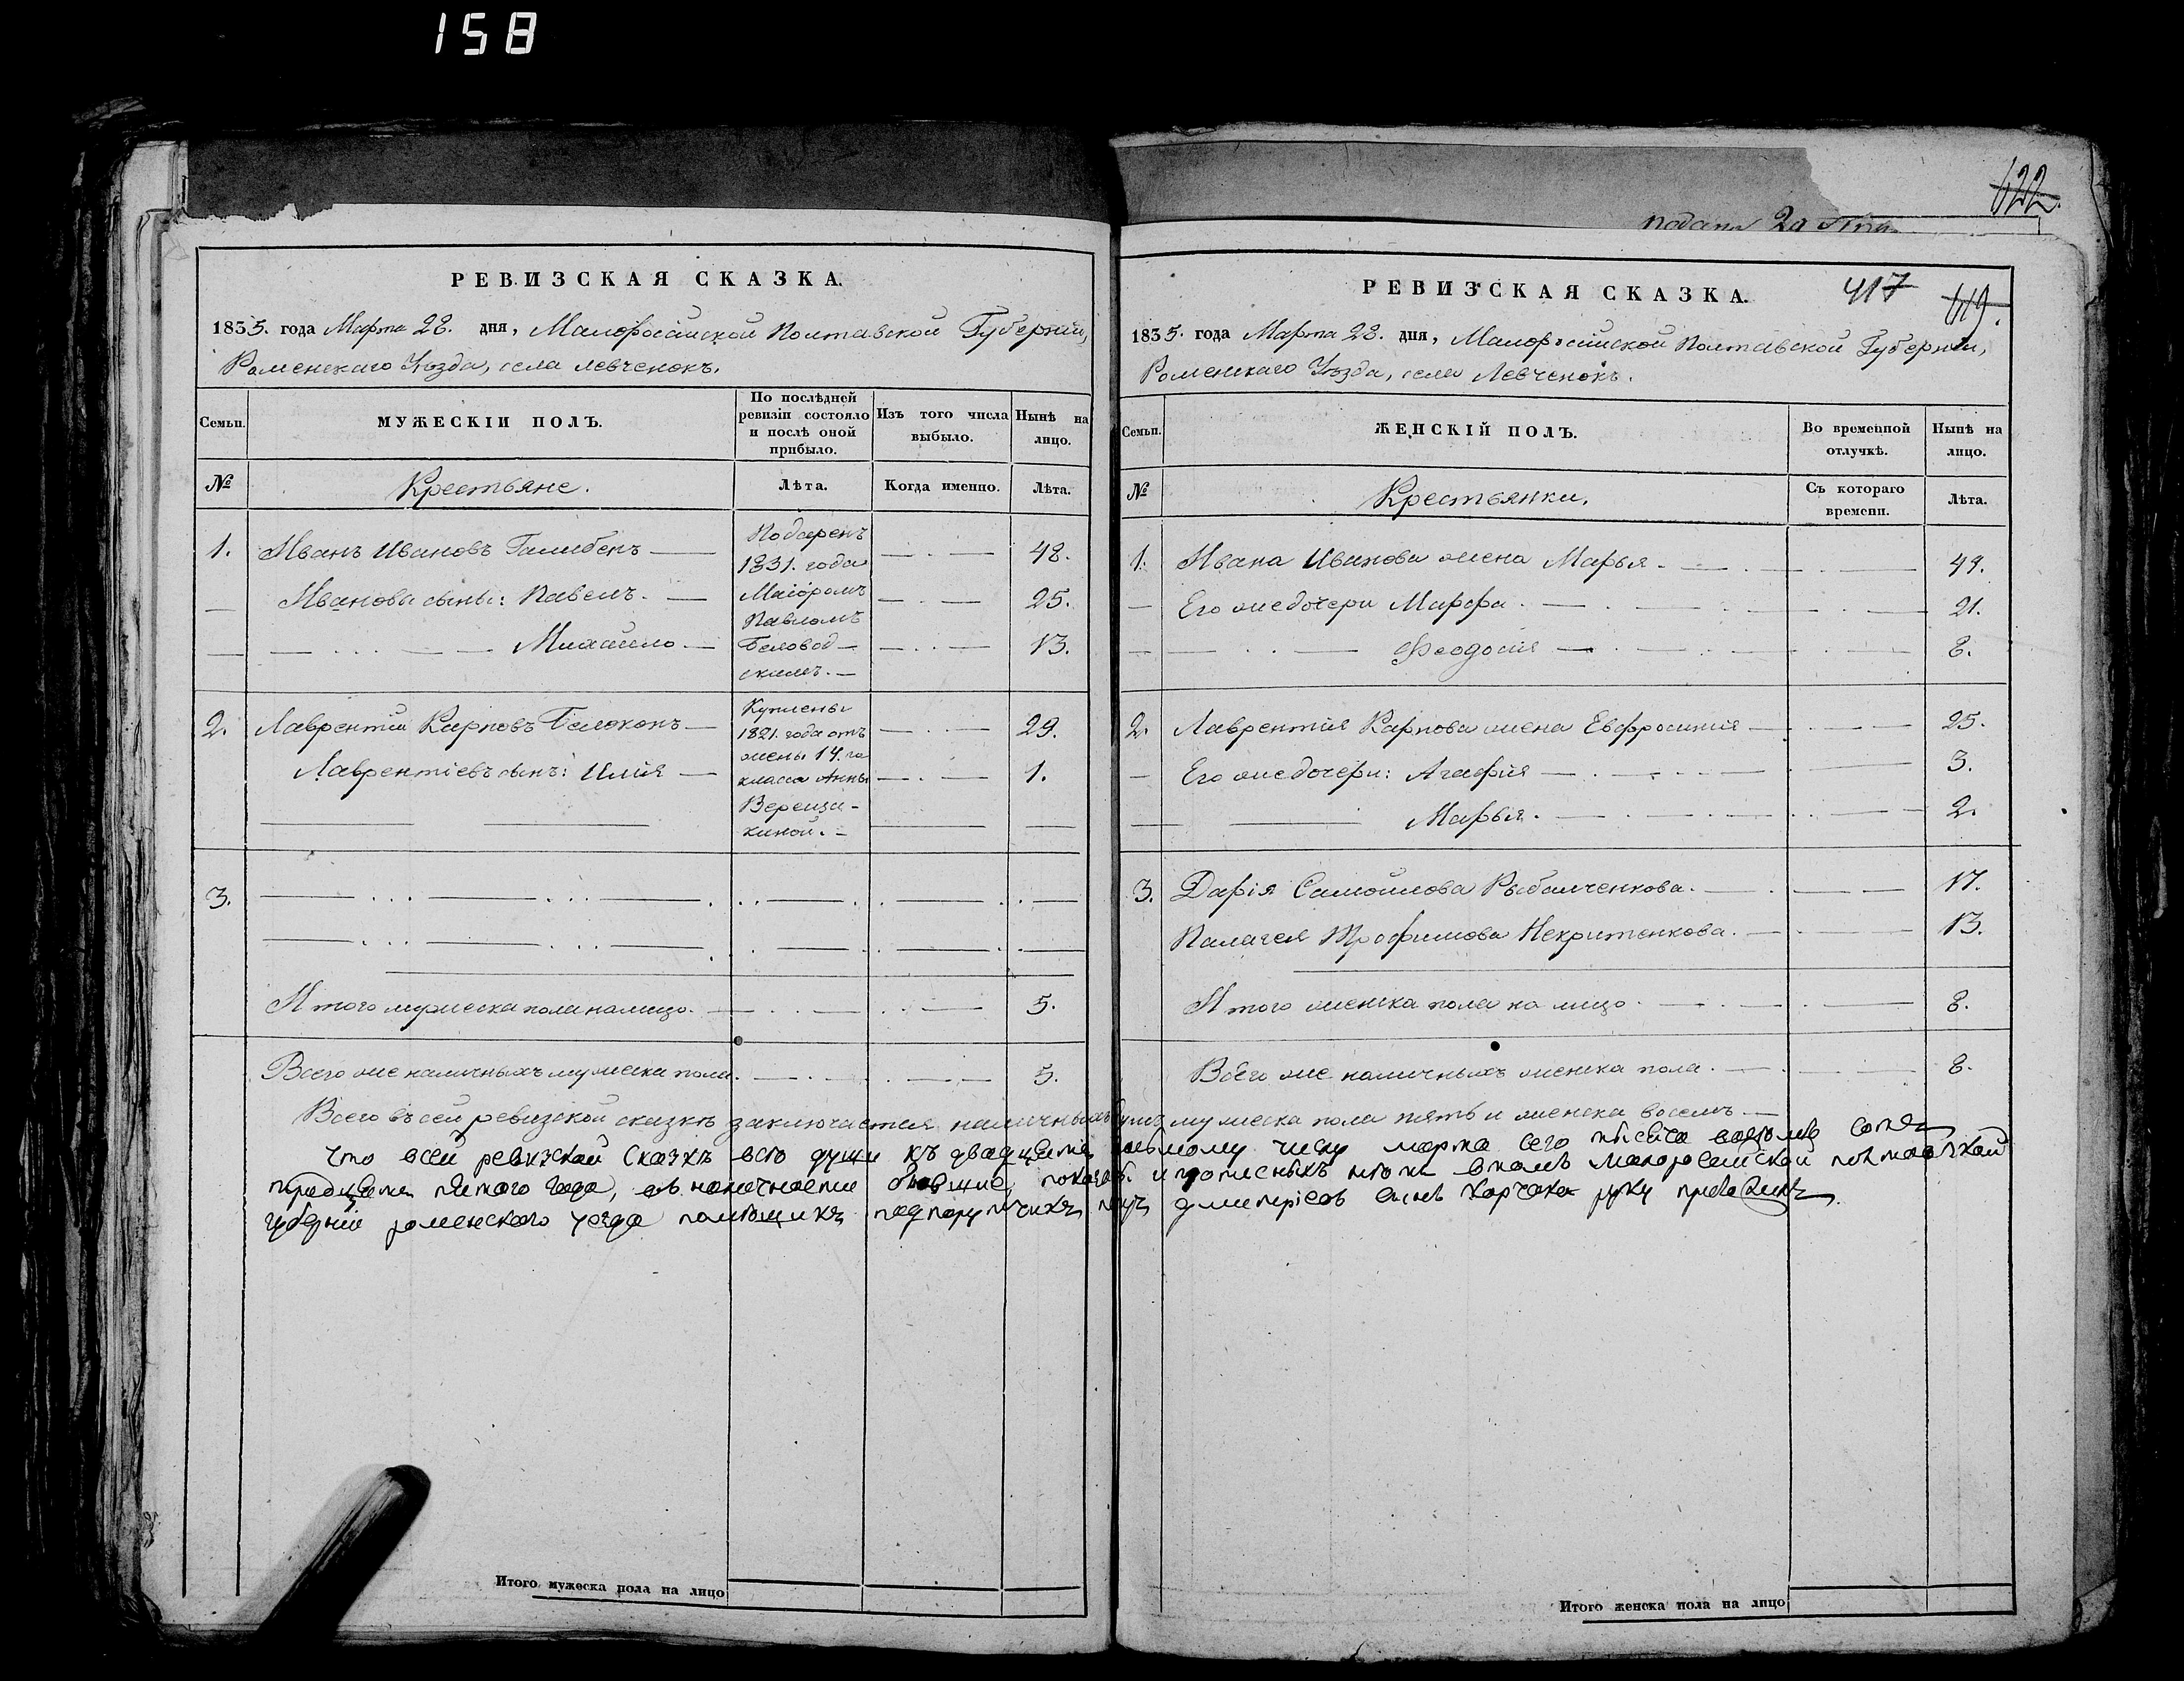 158
РЕВИЗСКАЯ СКАЗКА.
1835. года Марта 28. дня, Малоросійской Полтавской Губерніи,
Роменскаго Уѣзда, села Левченокъ.
Семьи.
МУЖЕСКІИ ПОЛЪ.
По послѣдней
ревизіи состояло
и послѣ оной
прибыло.
Изъ того числа
выбыло.
Нынѣ на
лицо.
№
Крестьяне.
Лѣта.
Когда именно.
Лѣта.
1. Иванъ Ивановъ 48.
Ивановы сыны: Павелъ. 25.
Михайло 13.
Подаренъ
1831. года
Маіоромъ
Павломъ
Беловод—
скимъ.—
2. Лаврентій Карповъ Белоконъ 29.
Лаврентіевъ сынъ: Илія 1.
Куплены
1821. года отъ
жены 14. го
класса Анны
Вереща-
киной.—
3.
Итого мужеска пола на лицо. 5.
Всего же наличныхъ мужеска пола. 5.
подана 20
622.
РЕВИЗСКАЯ СКАЗКА.
417
619.
1835. года Марта 28. дня, Малоросійской Полтавской Губерніи,
Роменскаго Уѣзда, села Левченокъ.
Семьи.
ЖЕНСКІЙ ПОЛЪ.
Во временной
отлучкѣ.
Нынѣ на
лицо.
№
Крестьянки.
Съ котораго
времени.
Лѣта.
1. Ивана Иванова жена Марья.
Его же дочери Марфа. 21.
Феодосія 8.
2. Лаврентія Карпова жена Евфросинія 25.
Его же дочери: Агафія 3.
Марья. 2.
3. Дарія Самойлова Рыбалченкова. 17.
Палагея Трофимова Некритенкова. 13.
Итого женска пола на лицо. 8.
Всего же наличныхъ женска пола. 8.
Всего въ сей ревизской сказкѣ заключается наличныхъ душъ мужеска пола пять и женска восемь
Что всей ревизской сказкѣ всѣ души къ двадцать восьмому числу марта сего тысеча восѣмъ сотъ
тридцать пятого года, въ наличности показаны и прописныхъ нѣтъ в томъ малоросійской полтавской
губерніи роменского уезда помѣщикъ подпорутчикъ дмитріевъ сынъ Корчака руку приложилъ.
Итого мужеска пола на лицо
Итого женска пола на лицо